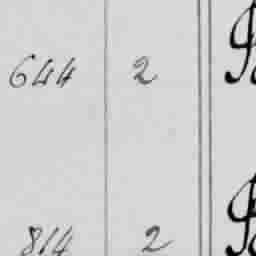 644 2
814 2